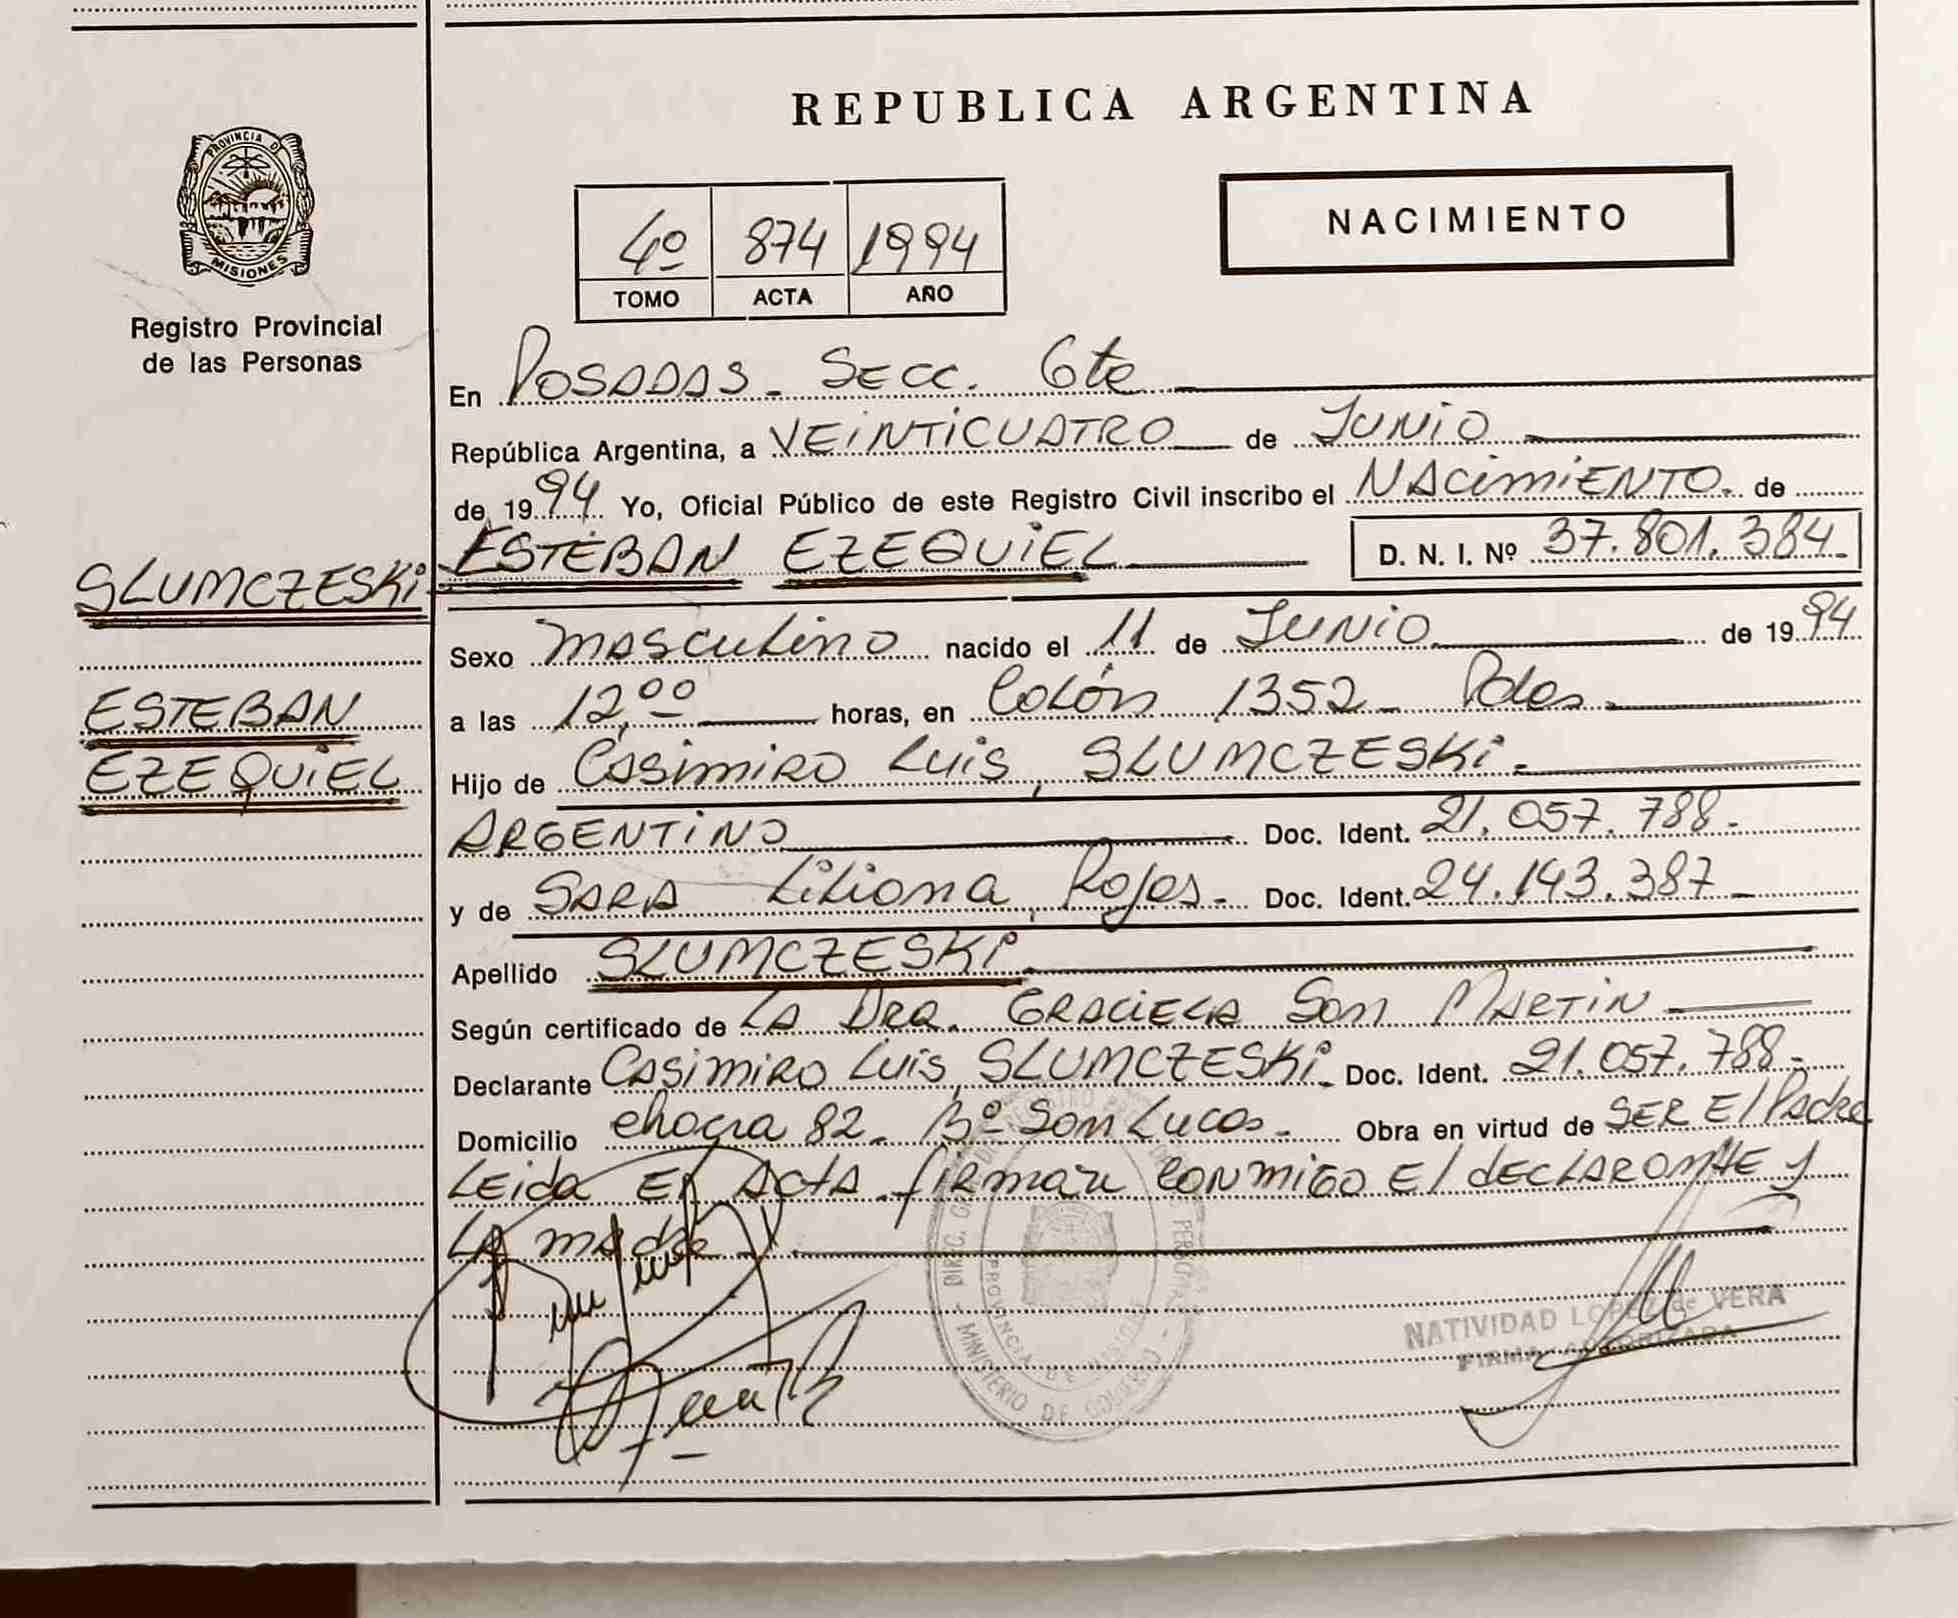 REPUBLICA ARGENTINA
PROVINCIA D
MISIONES
Registro Provincial
de las Personas
4º 874 1994
TOMO ACTA AÑO
NACIMIENTO
En POSADAS. Secc. 6te
República Argentina, a VEINTICUATRO de JUNIO
de 1994 Yo, Oficial Público de este Registro Civil inscribo el NACIMIENTO. de
SLUMCZESKI
ESTEBAN EZEQUIEL D. N. I. Nº 37.801.384
Sexo masculino nacido el 11 de JUNIO de 1994
ESTEBAN
EZEQUIEL
a las 12,00 horas, en Colón 1352 Pdas
Hijo de Casimiro Luis, SLUMCZESKI.
ARGENTINO Doc. Ident. 21.057.788.
y de SARA Liliana, Rojas. Doc. Ident. 24.143.387
Apellido SLUMCZESKI
Según certificado de LA Dra. GRACIELA San MARTIN
Declarante Casimiro Luis, SLUMCZESKI. Doc. Ident. 21.057.788
Domicilio chacra 82. Bº San Lucas. Obra en virtud de SER El Padre
LEida El Acta firman CONMIGO El DECLARANTE y
LA madre
DIREC. GRAL. DE REGISTRO PROV. DE LAS PERSONAS
PROVINCIA DE MISIONES
MINISTERIO DE GOBIERNO
NATIVIDAD LOPEZ de VERA
FIRMA AUTORIZADA